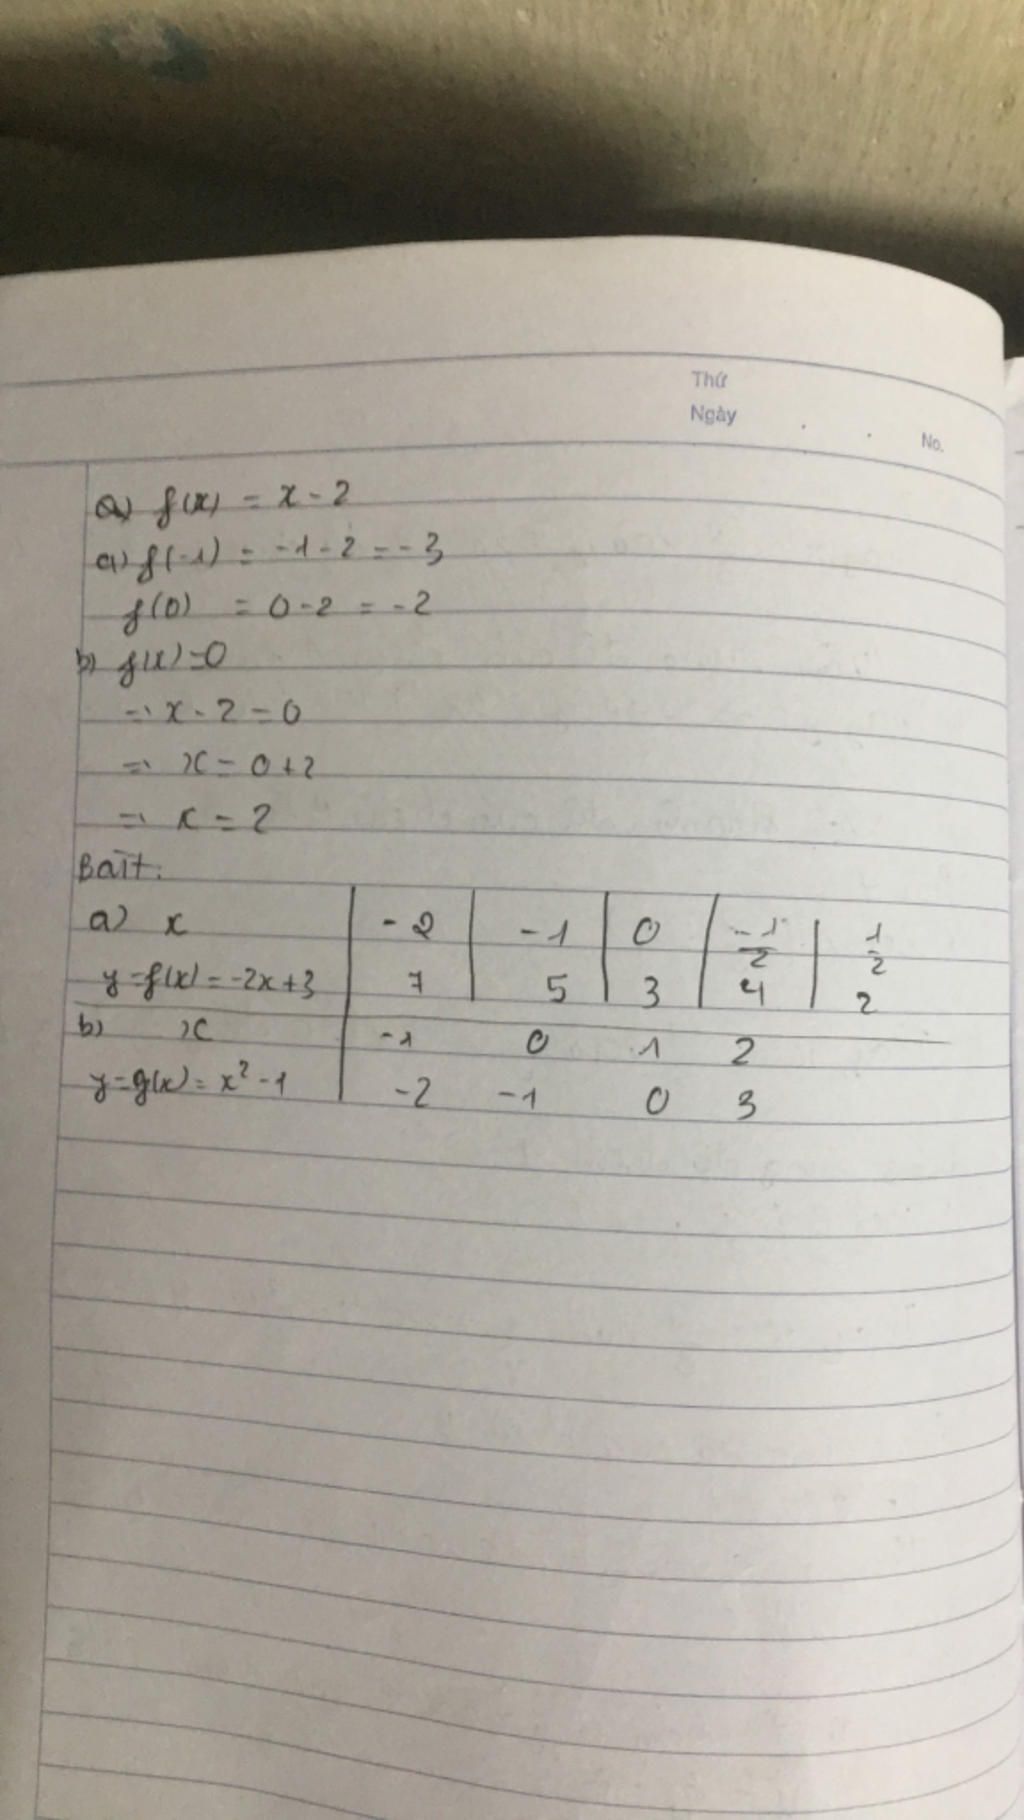 Thứ
Ngày
No.
a) f(x) = x - 2
a) f(-1) = -1 - 2 = -3
f(0) = 0 - 2 = -2
b) f(x) = 0
⇒ x - 2 = 0
⇒ x = 0 + 2
⇒ x = 2
a) x -2 -1 0 -1/2 1/2
y = f(x) = -2x + 3 7 5 3 4 2
b) x -1 0 1 2
y = g(x) = x² - 1 -2 -1 0 3